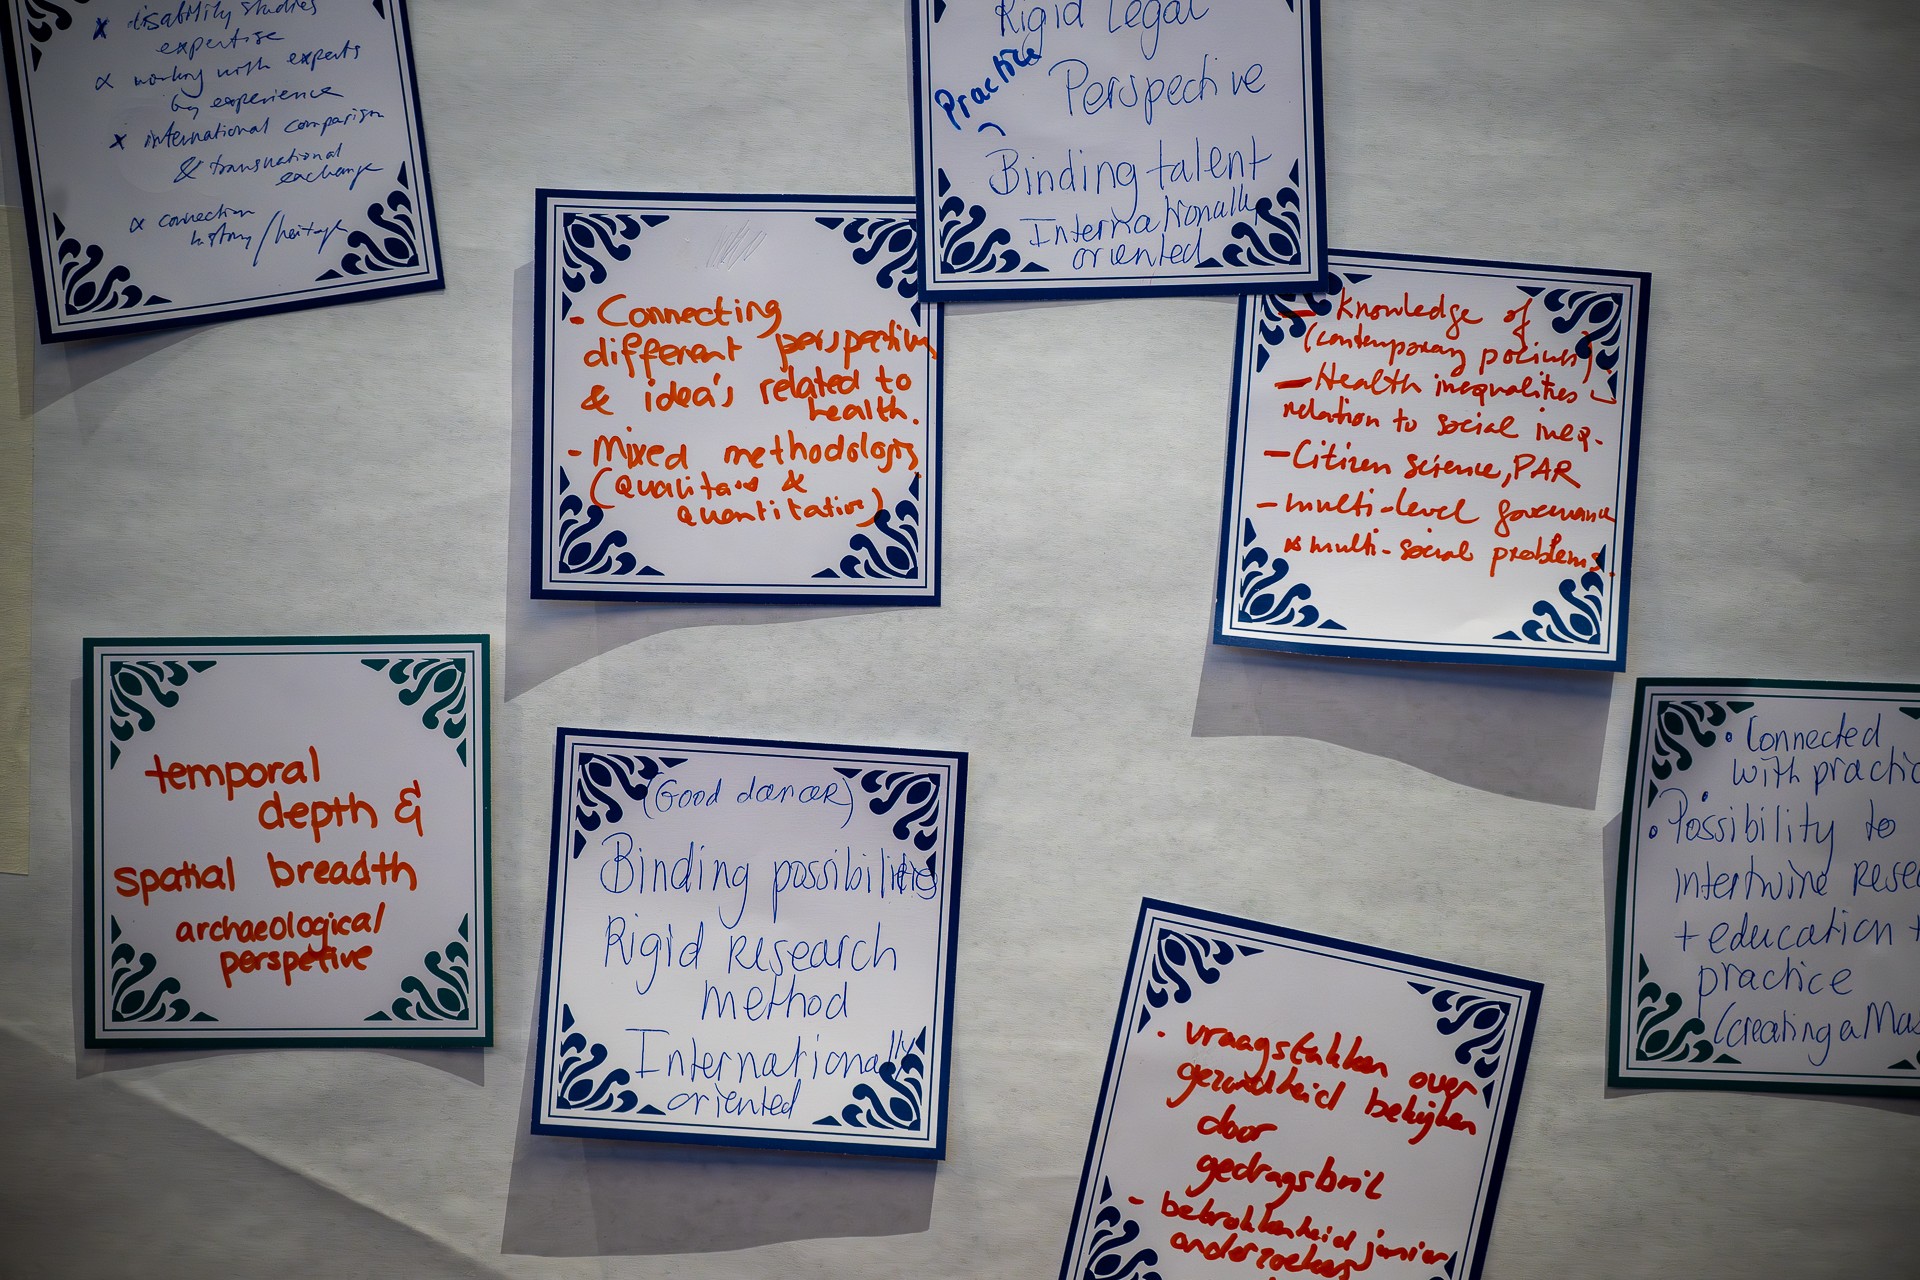 x disability studies
expertise
x working with experts
by experience
x international comparison
& transnational
exchange
x connection
history/heritage
Rigid Legal
Practice
Perspective
Binding talent
Internationally
oriented
- Connecting
different perspectives
& idea's related to
health.
- Mixed methodologies
(Qualitative &
quantitative)
- Knowledge of
(contemporary policies)
- Health inequalities
relation to social ineq.
- Citizen science, PAR
- multi-level governance
multi-social problems.
temporal
depth &
spatial breadth
archaeological
perspetive
(Good dancer)
Binding possibilities
Rigid research
method
Internationally
oriented
• vraagstukken over
gezondheid bekijken
door
gedragsbril
- betrokkenheid junior
onderzoekers
• Connected
with practic
• Possibility to
intertwine resea
+ education +
practice
(creating a Mas